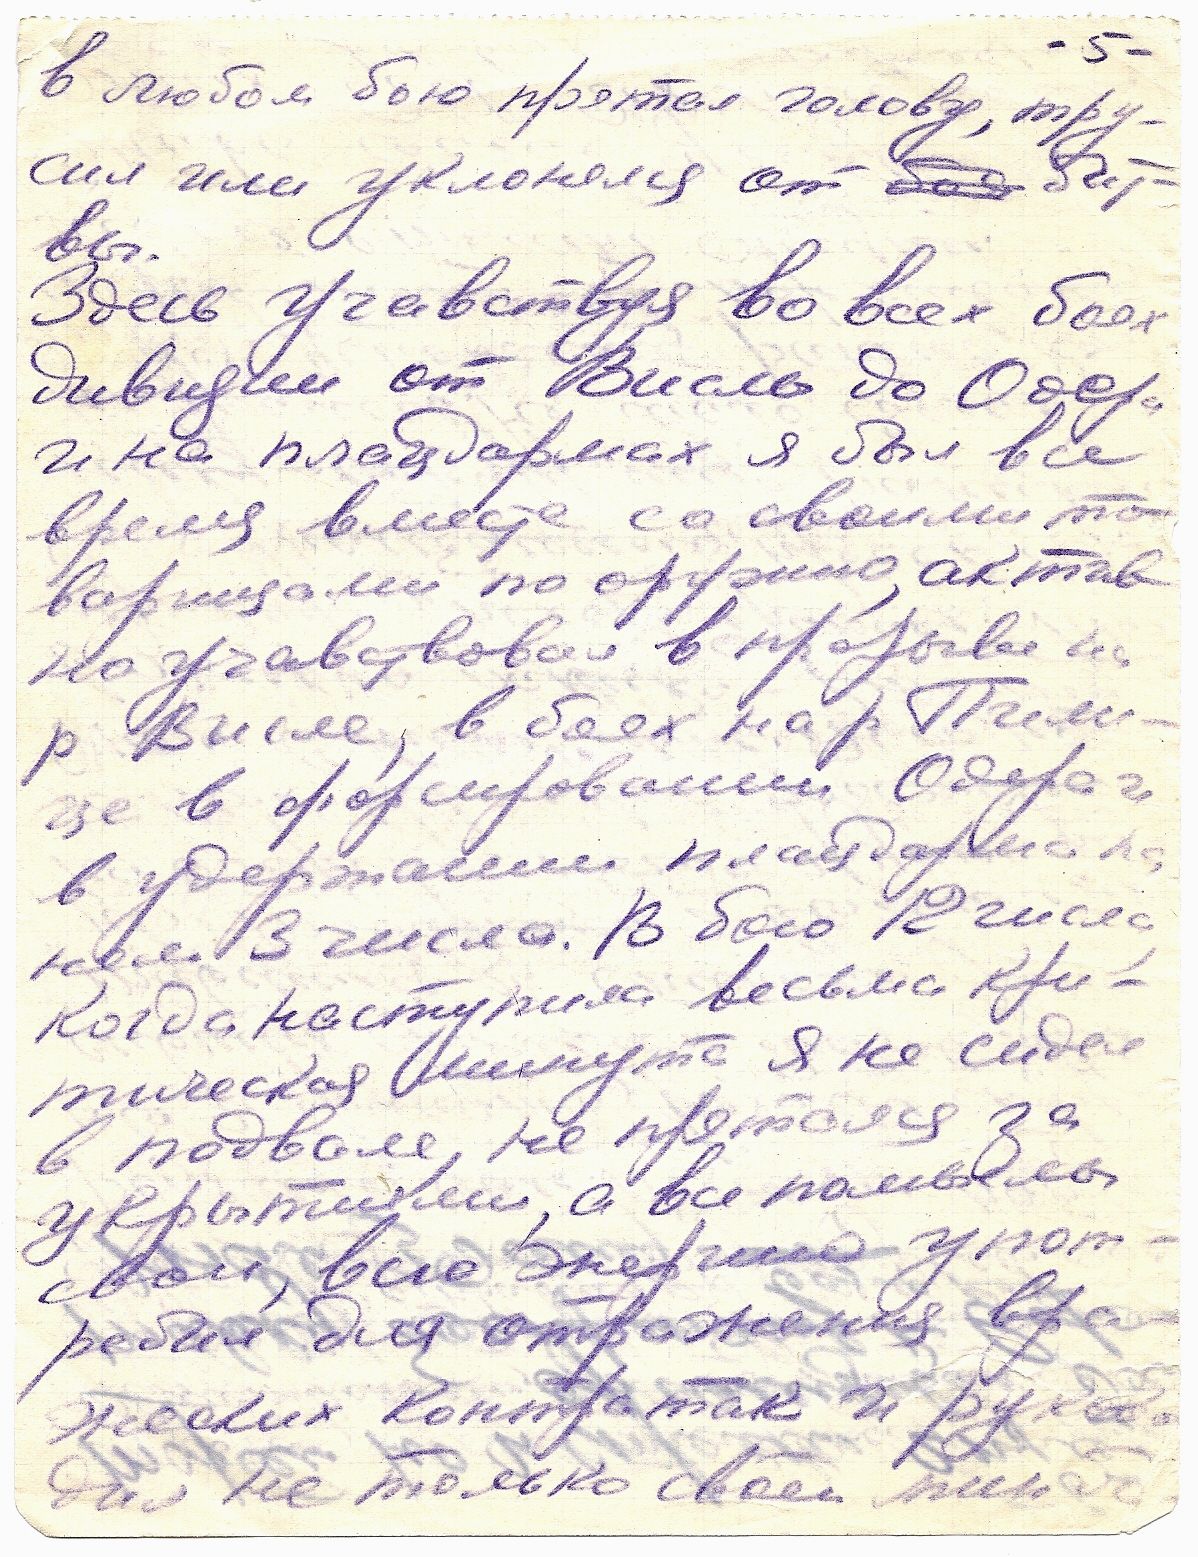 - 5 -
в любом бою прятал голову, тру-
сил или уклонялся от боя бит-
вы.
Здесь учавствуя во всех боях
дивизии от Вислы до Одера
и на плацдармах я был все
время вместе со своими то
варищами по оружию, актив
но учавствовал в прорыве на
р Висле, в боях на р Пили-
це в форсировании Одера и
в удержании плацдарма на
нем 3 числа. В бою 12 числа
когда наступила весьма кри-
тическая минута я не сидел
в подвале, не прятался за
укрытиями, а все помыслы
свои, всю энергию упот-
ребил для отражения вра-
жеских контратак и руково
дил не только своей